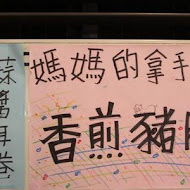 媽媽的拿手
香煎豬
蒜醬耳卷